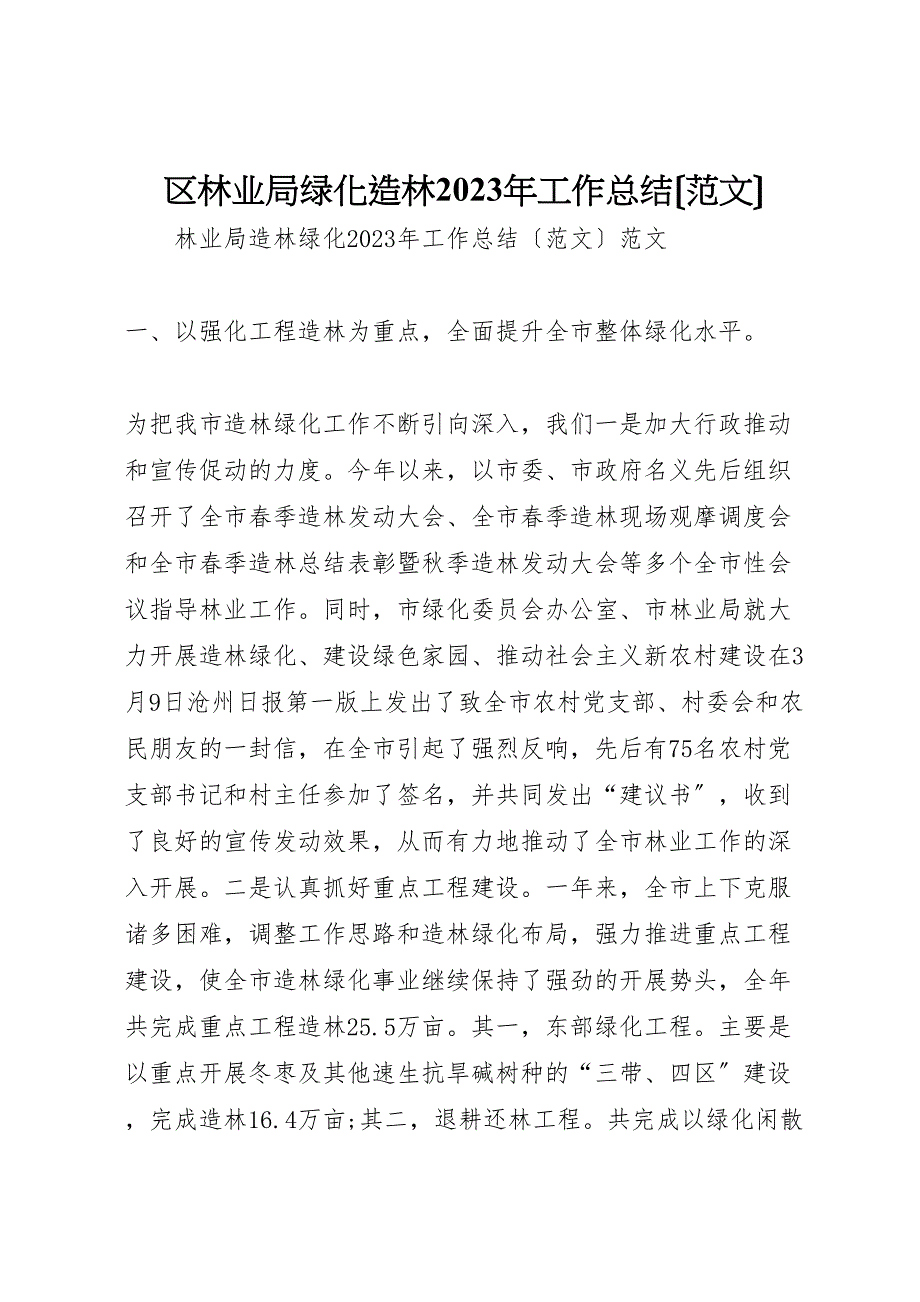 区林业局绿化造林2023年工作总结[范文]
林业局造林绿化2023年工作总结〔范文〕范文
一、以强化工程造林为重点，全面提升全市整体绿化水平。
为把我市造林绿化工作不断引向深入，我们一是加大行政推动
和宣传促动的力度。今年以来，以市委、市政府名义先后组织
召开了全市春季造林发动大会、全市春季造林现场观摩调度会
和全市春季造林总结表彰暨秋季造林发动大会等多个全市性会
议指导林业工作。同时，市绿化委员会办公室、市林业局就大
力开展造林绿化、建设绿色家园、推动社会主义新农村建设在3
月9日沧州日报第一版上发出了致全市农村党支部、村委会和农
民朋友的一封信，在全市引起了强烈反响，先后有75名农村党
支部书记和村主任参加了签名，并共同发出“建议书〞，收到
了良好的宣传发动效果，从而有力地推动了全市林业工作的深
入开展。二是认真抓好重点工程建设。一年来，全市上下克服
诸多困难，调整工作思路和造林绿化布局，强力推进重点工程
建设，使全市造林绿化事业继续保持了强劲的开展势头，全年
共完成重点工程造林25.5万亩。其一，东部绿化工程。主要是
以重点开展冬枣及其他速生抗旱碱树种的“三带、四区〞建设
，完成造林16.4万亩;其二，退耕还林工程。共完成以绿化闲散